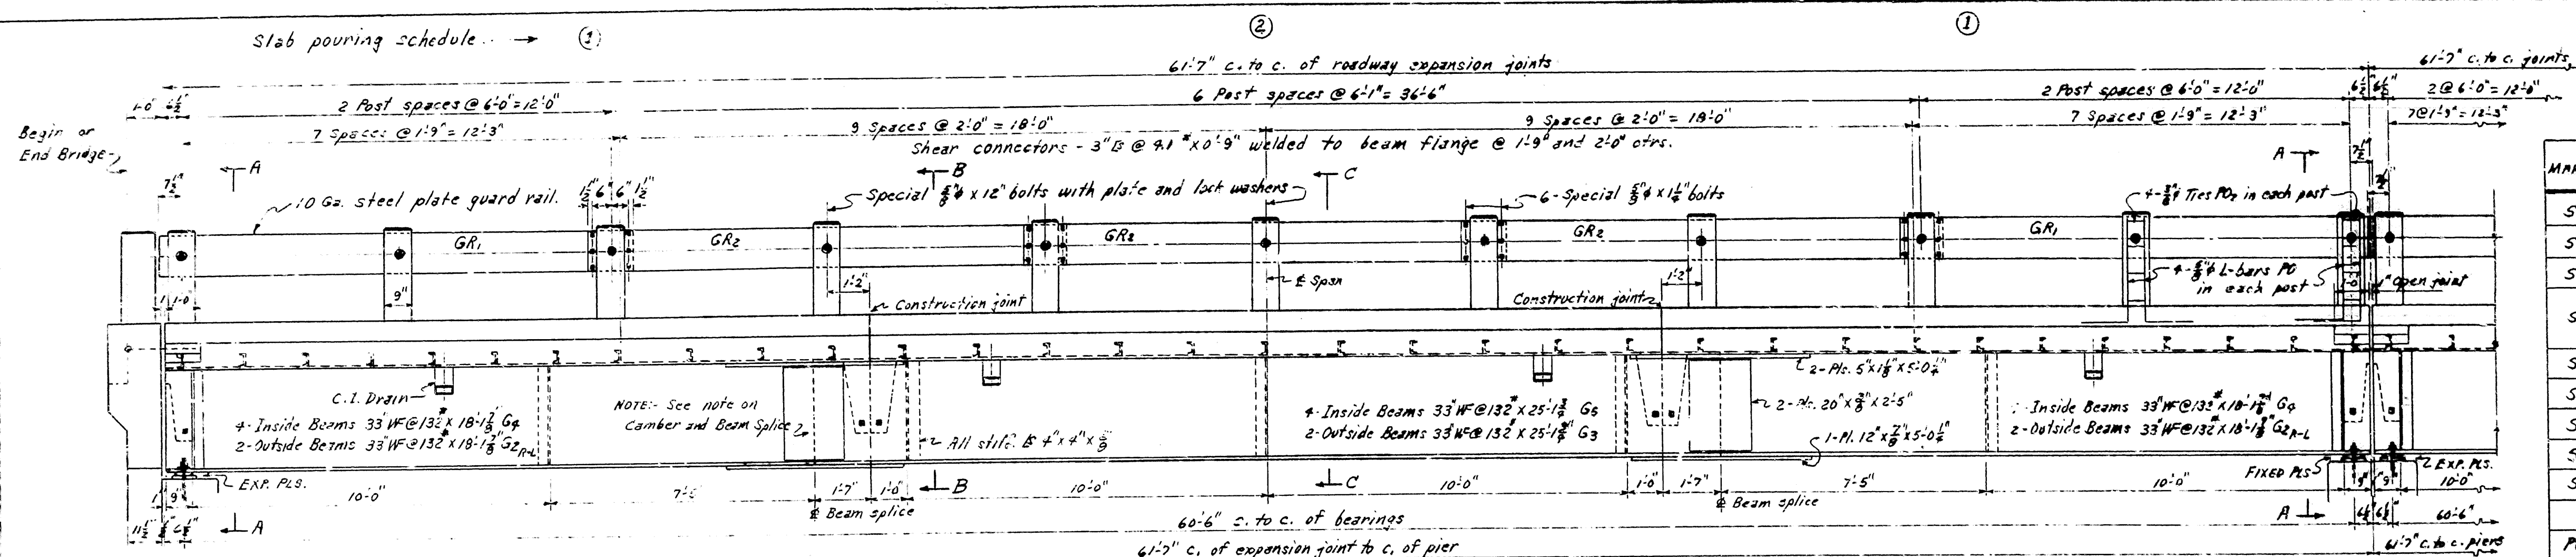 Slab pouring schedule. → ①
②
①
61'-7" c. to c. of roadway expansion joints
61'-7" c. to c. joints
1'-0" 6½"
2 Post spaces @ 6'-0" = 12'-0"
6 Post spaces @ 6'-1" = 36'-6"
2 Post spaces @ 6'-0" = 12'-0"
6½" 6½"
2 @ 6'-0" = 12'-0"
Begin or
End Bridge
7 Spaces @ 1'-9" = 12'-3"
9 Spaces @ 2'-0" = 18'-0"
9 Spaces @ 2'-0" = 18'-0"
7 Spaces @ 1'-9" = 12'-3"
7 @ 1'-9" = 12'-3"
Shear connectors - 3" @ 4.1 # x 0'-9" welded to beam flange @ 1'-9" and 2'-0" ctrs.
A
B
C
A
7½"
7½"
10 Ga. steel plate guard rail.
1½" 6" 6" 1½"
Special ⅝"φ x 12" bolts with plate and lock washers
6-Special ⅝"φ x 1¼" bolts
4-⅜"φ Ties PO₂ in each post
GR₁
GR₂
GR₂
GR₂
GR₁
9"
1'-0"
1'-2"
Construction joint
℄ Span
Construction joint
1'-2"
4-⅝"φ L-bars PO
in each post
1" Open joint
C.I. Drain
4-Inside Beams 33"WF@132# x 18'-1⅞" G4
2-Outside Beams 33"WF@132# x 18'-1⅞" G2 R-L
NOTE:- See note on
Camber and Beam Splice
All stiff. 4" x 4" x ⅜
4-Inside Beams 33"WF@132# x 25'-1¾" G5
2-Outside Beams 33"WF@132# x 25'-1¾" G3
2-Pls. 5" x 1⅛" x 5'-0¼"
2-Pls. 20" x ⅜" x 2'-5"
1-Pl. 12" x ⅞" x 5'-0¼"
Inside Beams 33"WF@132# x 18'-1⅞" G4
2-Outside Beams 33"WF@132# x 18'-1⅞" G2 R-L
EXP. PLS.
FIXED PLS
EXP. PLS.
9"
10'-0"
7'-5"
1'-7"
1'-0"
B
10'-0"
C
10'-0"
1'-0"
1'-7"
7'-5"
10'-0"
9" 9"
10'-0"
℄ Beam splice
℄ Beam splice
11½"
A
60'-6" c. to c. of bearings
A
6½" 6½"
60'-6"
61'-7" c. of expansion joint to c. of pier
61'-7" c. to c. piers